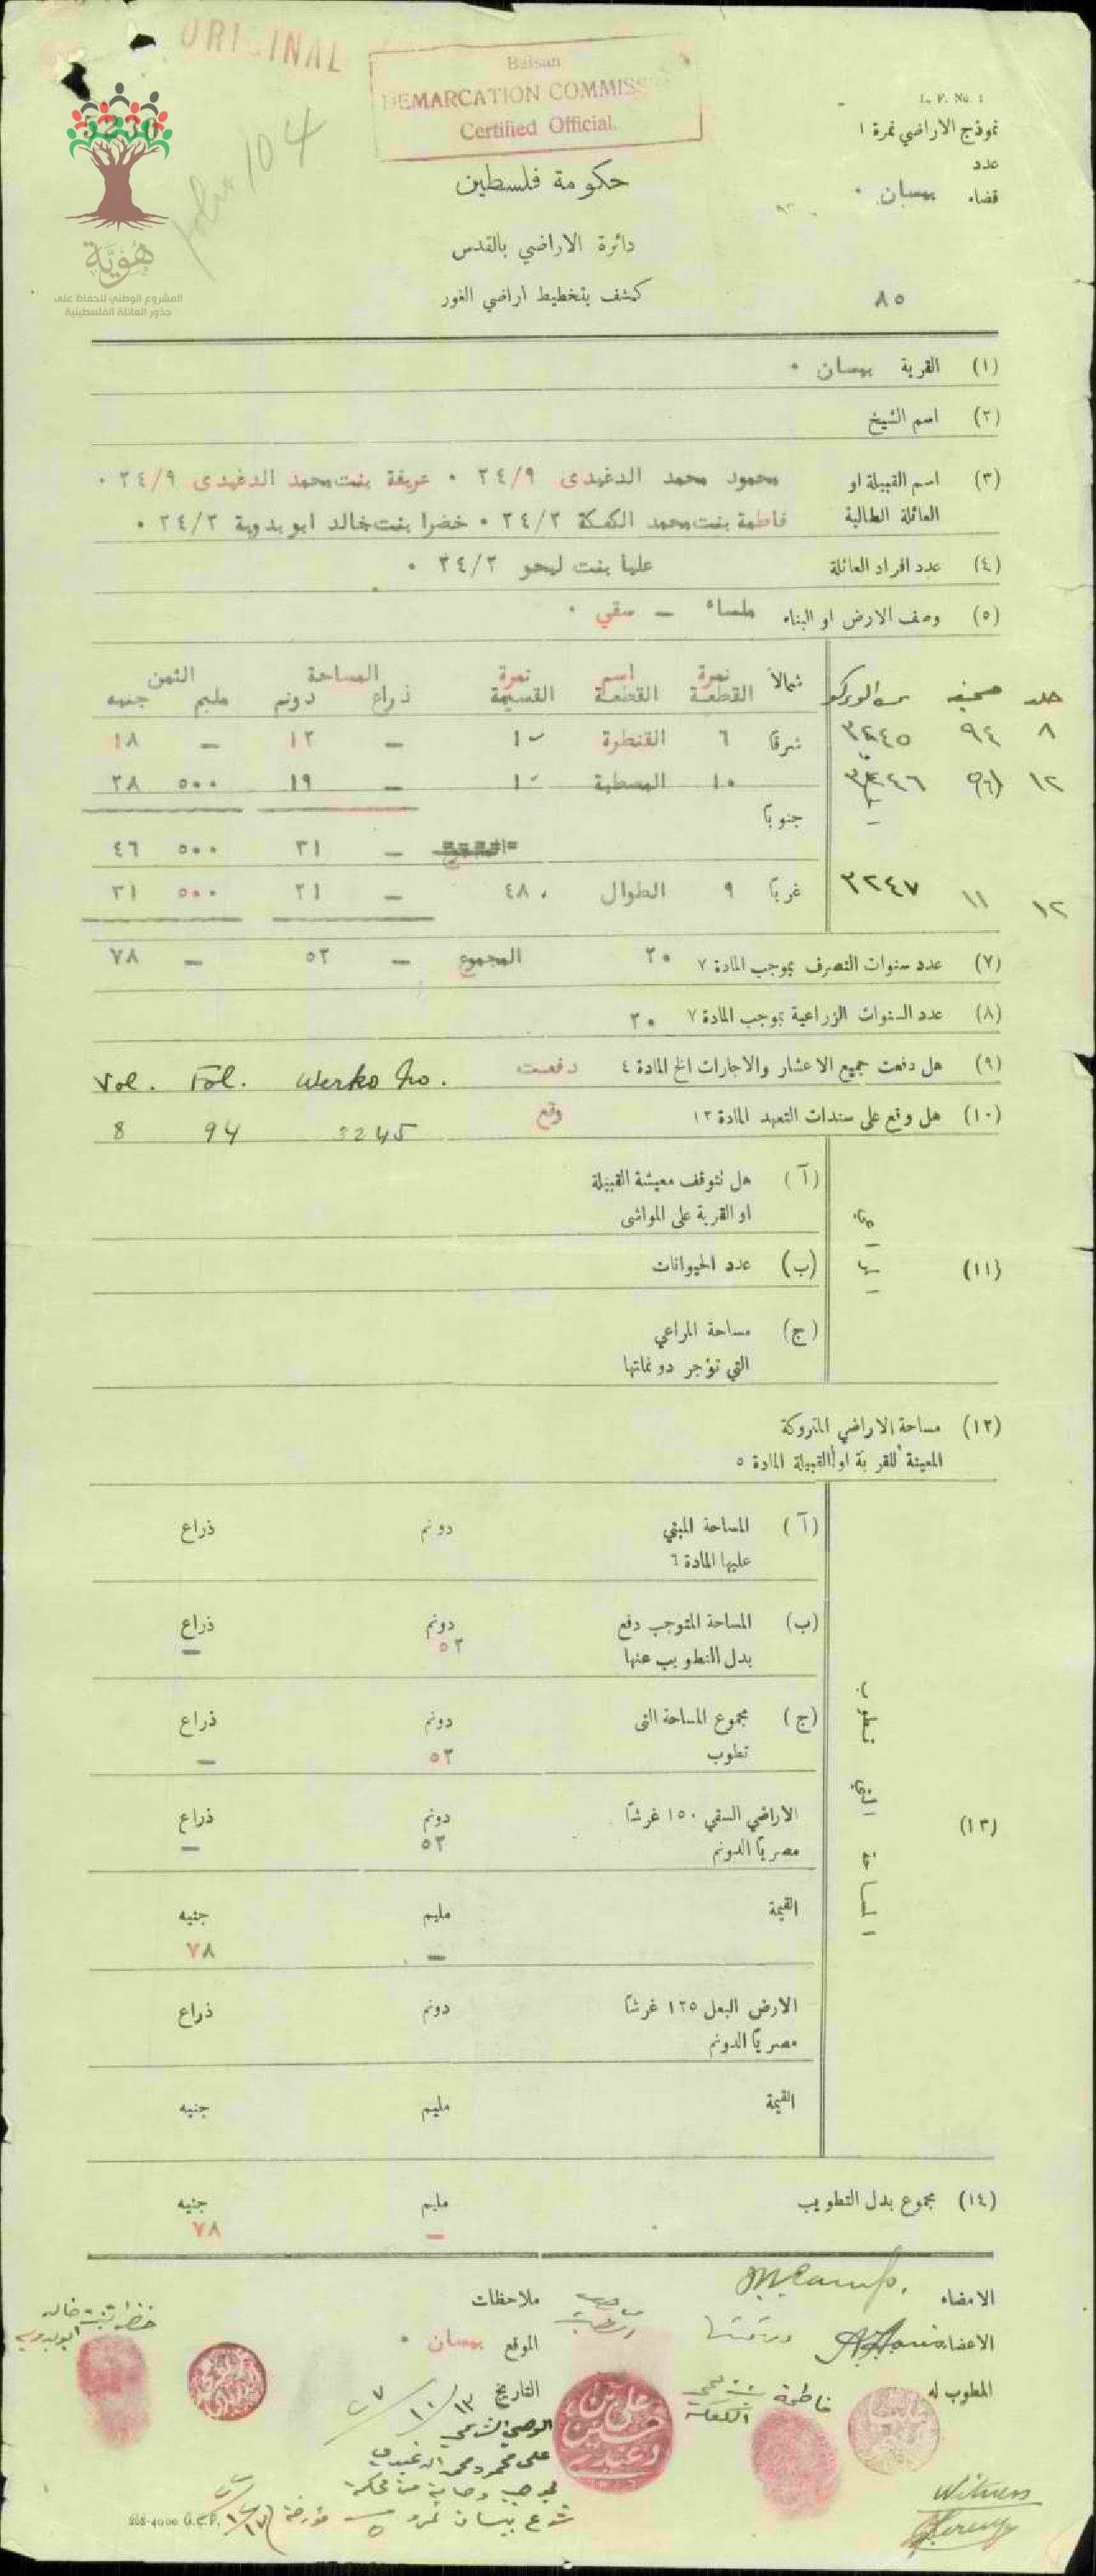 ORIGINAL
Baisan
DEMARCATION COMMISS
Certified Official.
L. F. No. 1
نموذج الاراضي نمرة ١
عدد
قضاء بيسان ٠
104
حكومة فلسطين
دائرة الاراضي بالقدس
كشف بتخطيط اراضي الغور
٨٥
هُوِيَّة
المشروع الوطني للحفاظ على
جذور العائلة الفلسطينية
(١) القرية بيسان ٠
(٢) اسم الشيخ
(٣) اسم القبيلة او محمود محمد الدغيدى ٢٤/٩ ٠ عريفة بنت محمد الدغيدى ٢٤/٩ ٠
العائلة الطالبة فاطمة بنت محمد الكفكة ٢٤/٢ ٠ خضرا بنت خالد ابو بدوية ٢٤/٢ ٠
(٤) عدد افراد العائلة عليا بنت ليحو ٢٤/٢ ٠
(٥) وصف الارض او البناء ملساء – سقي ٠
جلد صحيفه الوركو شمالاً نمرة القطعة اسم القطعة نمرة القسيمة المساحة ذراع دونم الثمن مليم جنيه
٨ ٩٤ ٣٢٤٥ شرقاً ٦ القنطرة ١٠ – ١٢ – ١٨
١٢ ٣٢٤٦ ١٠ المسطبة ١٠ – ١٩ ٥٠٠ ٢٨
جنوباً
– ٣١ ٥٠٠ ٤٦
١٢ ١١ ٣٢٤٧ غرباً ٩ الطوال ٤٨ – ٢١ ٥٠٠ ٣١
(٧) عدد سنوات التصرف بموجب المادة ٧ ٢٠ المجموع – ٥٢ – ٧٨
(٨) عدد السنوات الزراعية بموجب المادة ٧ ٢٠
(٩) هل دفعت جميع الاعشار والاجارات الخ المادة ٤ دفعت
Vol. Fol. Werko No.
(١٠) هل وقع على سندات التعهد المادة ١٢ وقع
8 94 3245
(١١) (آ) هل تتوقف معيشة القبيلة
او القرية على المواشي
(ب) عدد الحيوانات
(ج) مساحة المراعي
التي تؤجر دونماتها
(١٢) مساحة الاراضي المتروكة
المعينة للقرية او القبيلة المادة ٥
(١٣) المساحة التي تطوب
(آ) المساحة المبني دونم ذراع
عليها المادة ٦
(ب) المساحة المتوجب دفع دونم ذراع
بدل التطويب عنها ٥٢ –
(ج) مجموع المساحة التي دونم ذراع
تطوب ٥٢ –
الاراضي السقي ١٥٠ غرشاً دونم ذراع
مصرياً الدونم ٥٢ –
القيمة مليم جنيه
– ٧٨
الارض البعل ١٢٥ غرشاً دونم ذراع
مصرياً الدونم
القيمة مليم جنيه
(١٤) مجموع بدل التطويب مليم جنيه
– ٧٨
الامضاء
ملاحظات
الاعضاء
الموقع بيسان ٠
المطوب له
التاريخ ١٣/١٠/٢٧
خضرا بنت خالد
ابو بدويه
فاطمة بنت محمد
الكفكة
الوصي الشرعي
على محمود محمد الدغيدي
بموجب وصاية من محكمة
شرع بيسان نمرو ٥ مؤرخة
علي بن
حسين
دغيدي
Witness
268-4000 G.C.P.